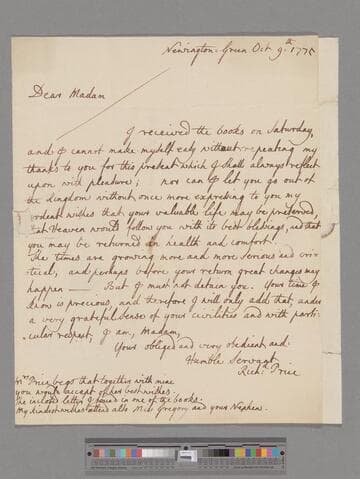 Newington-Green Oct 9.th 1775
Dear Madam
I received the books on Saturday,
and I cannot make myself easy without repeating my
thanks to you for this present which I shall always reflect
upon with pleasure; nor can I let you go out of
the kingdom without once more expressing to you my
ardent wishes that your valuable life may be preserved,
that Heaven would follow you with its best blessings, and that
you may be returned in health and comfort.
The times are growing more and more serious and cri-
tical, and perhaps before your return great changes may
happen — But I must not detain you. Your time I
know is precious, and therefore I will only add that, under
a very grateful sense of your civilities and with parti-
cular respect, I am, Madam,
Your obliged and very obedient and
Humble Servant
Rich.d Price
Mrs Price begs that together with mine
you would accept of her best wishes.
The inclosed letter I found in one of the books.
My kindest wishes attend also Miss Gregory and your Nephew.